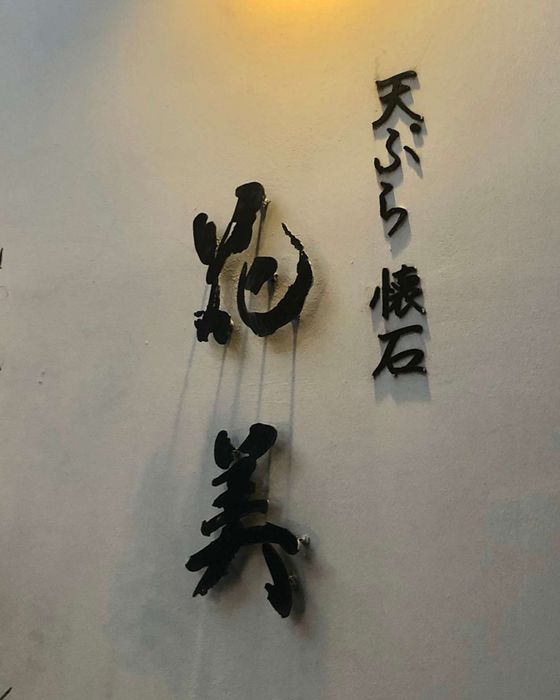 天ぷら 懐石
美